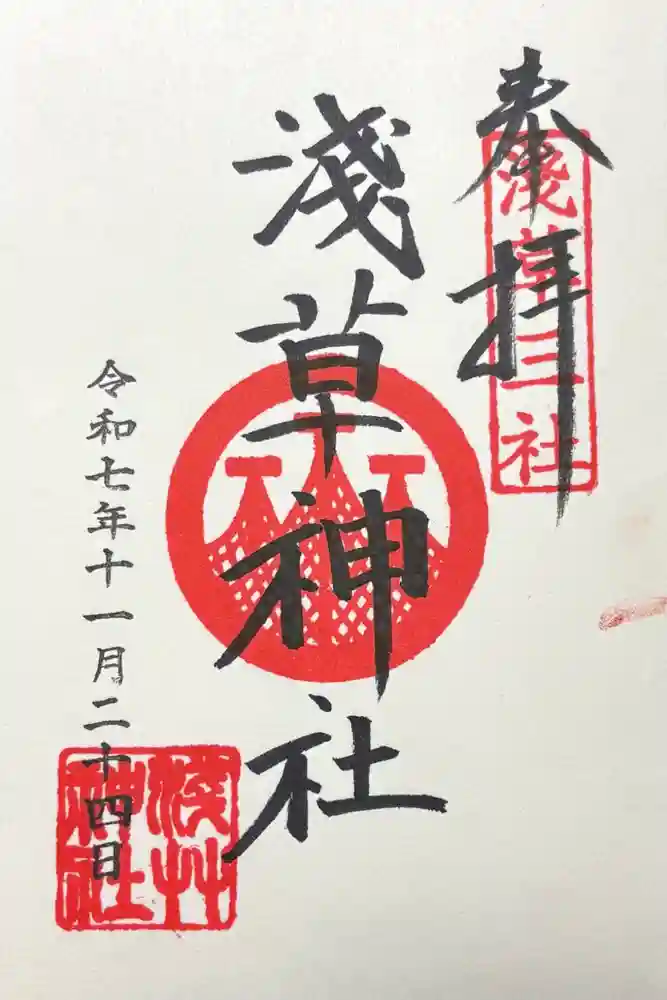 奉拝
淺草三社
淺草神社
令和七年十一月二十四日
淺艸
神社